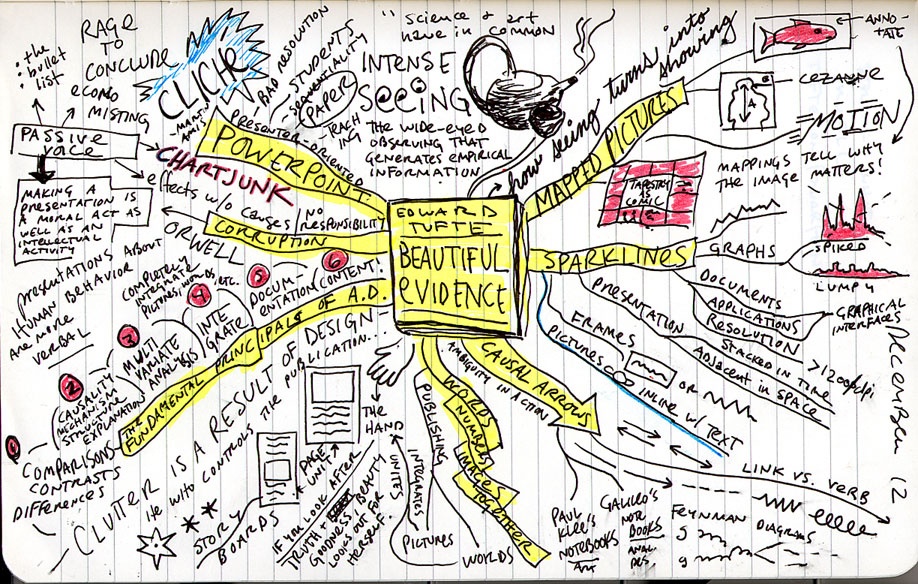 : the
: bullet
: list
RAGE
TO
CONCLUDE
ECONO
MISTING
PASSIVE
VOICE
MAKING A
PRESENTATION IS
A MORAL ACT AS
WELL AS AN
INTELLECTUAL
ACTIVITY
CLICHE
BAD RESOLUTION
STUDENTS
SEQUENTIALITY
PAPER
TEACH
ING
PRESENTER-ORIENTED
POWERPOINT
CHARTJUNK
effects w/o causes
NO
RESPONSIBILITY
CORRUPTION
ORWELL
"science & art
have in common
INTENSE
SEEING
THE WIDE-EYED
OBSERVING THAT
GENERATES EMPIRICAL
INFORMATION
how seeing turns into
showing
MAPPED PICTURES
ANNO-
TATE
CEZANNE
MOTION
MAPPINGS TELL WHY
THE IMAGE MATTERS!
TAPESTRY
AS
COMIC
EDWARD
TUFTE
BEAUTIFUL
EVIDENCE
SPARKLINES
GRAPHS
SPIKED
LUMPY
DOCUMENTS
APPLICATIONS
RESOLUTION
GRAPHICAL
INTERFACES
>1200 dpi
PRESENTATION
STACKED IN TIME
ADJACENT IN SPACE
FRAMES
OR
PICTURES
INLINE W/ TEXT
DECEMBER 12
presentations about
HUMAN BEHAVIOR
ARE MORE
VERBAL
THE
FUNDAMENTAL PRINCIPALS OF A.D.
1
COMPARISONS
CONTRASTS
DIFFERENCES
2
CAUSALITY
MECHANISM
STRUCTURE
EXPLANATION
3
MULTI
VARIATE
ANALYSIS
COMPLETELY
INTEGRATE
PICTURES, WORDS, ETC.
4
INTE
GRATE
5
DOCUM
ENTATION
6
CONTENT!
CLUTTER IS A RESULT OF DESIGN
HE WHO CONTROLS THE PUBLICATION..
STORY
BOARDS
PAGE
UNIT
IF YOU LOOK AFTER
TRUTH &
GOODNESS, BEAUTY
LOOKS OUT FOR
HERSELF.
THE
HAND
UNITES
PUBLISHING
INTEGRATES
PICTURES
WORDS
WORDS
NUMBERS
IMAGES
TOGETHER
AMBIGUITY IN ACTION
CAUSAL ARROWS
PAUL
KLEE'S
NOTEBOOKS
ART
GALILEO'S
NOTE
BOOKS
LINK VS. VERB
FEYNMAN DIAGRAMS